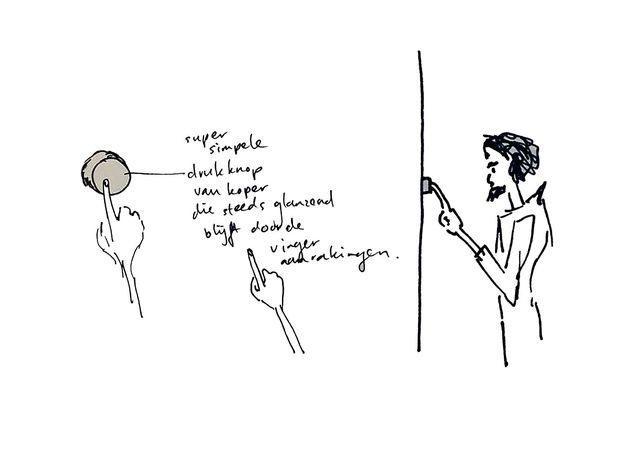 super
simpele
drukknop
van koper
die steeds glanzend
blijft door de
vinger
aanrakingen.